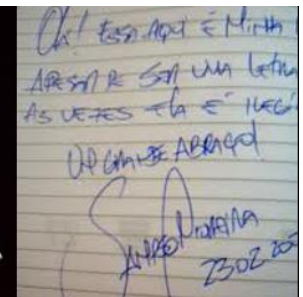 Oi! ESSA AQUI É MINHA
APESAR DE SER UMA LETRA
AS VEZES ELA É ILEGÍ
UM GRANDE ABRAÇO!
MOREIRA
23 02